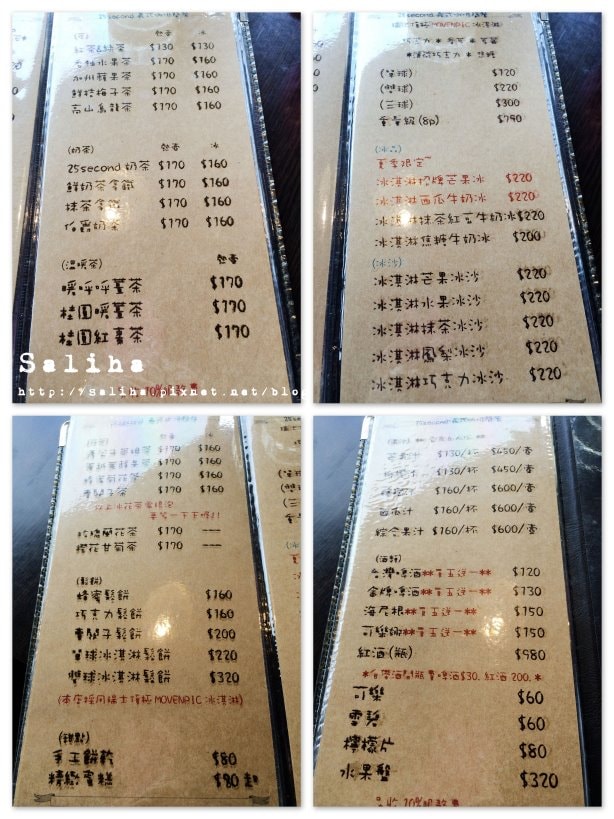 (茶) 熱壺 冰
紅茶&綠茶 $130 $130
香柚水果茶 $170 $160
加州蘋果茶 $170 $160
鮮桔梅子茶 $170 $160
高山烏龍茶 $170 $160
(奶茶) 熱壺 冰
25second 奶茶 $170 $160
鮮奶茶拿鐵 $170 $160
抹茶拿鐵 $170 $160
伯爵奶茶 $170 $160
(溫暖茶) 熱壺
暖呼呼薑茶 $170
桂圓暖薑茶 $170
桂圓紅棗茶 $170
Saliha
http://saliha.pixnet.net/blo
(單球) $120
(雙球) $220
(三球) $300
重量級 (8p) $790
(冰品)
夏季限定~
冰淇淋招牌芒果冰 $220
冰淇淋西瓜牛奶冰 $220
冰淇淋抹茶紅豆牛奶冰 $220
冰淇淋焦糖牛奶冰 $200
(冰沙)
冰淇淋芒果冰沙 $220
冰淇淋水果冰沙 $220
冰淇淋抹茶冰沙 $220
冰淇淋鳳梨冰沙 $220
冰淇淋巧克力冰沙 $220
$170 $160
$170 $160
$170 $160
$170 $160
$170 ---
櫻花甘菊茶 $170 ---
(鬆餅)
蜂蜜鬆餅 $160
巧克力鬆餅 $160
$200
單球冰淇淋鬆餅 $220
雙球冰淇淋鬆餅 $320
(本店採用瑞士頂極MOVENPIC冰淇淋)
(甜點)
手工餅乾 $80
精緻蛋糕 $80起
$130/杯 $450/壺
$130/杯 $450/壺
$160/杯 $600/壺
西瓜汁 $160/杯 $600/壺
綜合果汁 $160/杯 $600/壺
(酒類)
台灣啤酒**買五送一** $120
金牌啤酒**買五送一** $130
海尼根**買五送一** $150
可樂娜**買五送一** $150
紅酒(瓶) $980
可樂 $60
雪碧 $60
檸檬片 $80
水果盤 $320